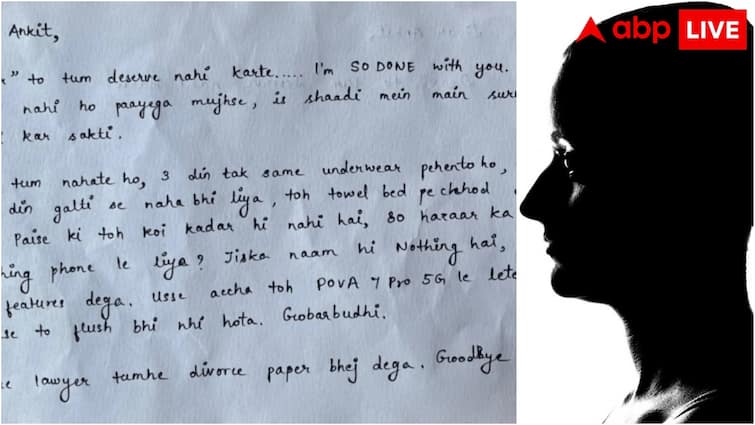 abp LIVE
Ankit,
" to tum deserve nahi karte..... I'm SO DONE with you.
nahi ho paayega mujhse, is shaadi mein main sur
kar sakti.
tum nahate ho, 3 din tak same underwear pehento ho,
din galti se naha bhi liya, toh towel bed pe chhod
Paise ki toh koi kadar hi nahi hai, 80 hazaar ka
hing phone le liya? Jiska naam hi Nothing hai,
features dega. Usse accha toh POVA 7 Pro 5G le lete
se to flush bhi nhi hota. Gobarbudhi.
lawyer tumhe divorce paper bhej dega. Goodbye